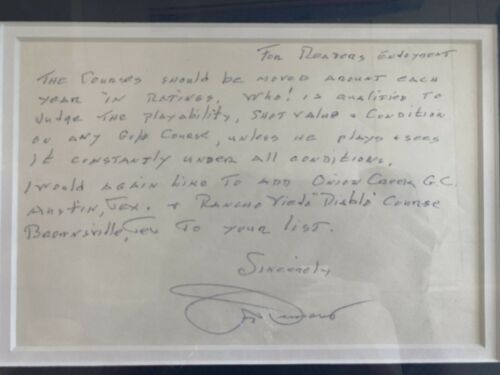 For Readers Enjoyment
The Courses should be moved around each
year in Ratings. Who! is qualified to
Judge The playability, shot value + Condition
on any Golf Course, unless he plays + sees
it constantly under all conditions.
I would again like to add Onion Creek G.C.
Austin, Tex. + Rancho Viejo "Diablo" Course
Brownsville, Tex to your list.
Sincerely